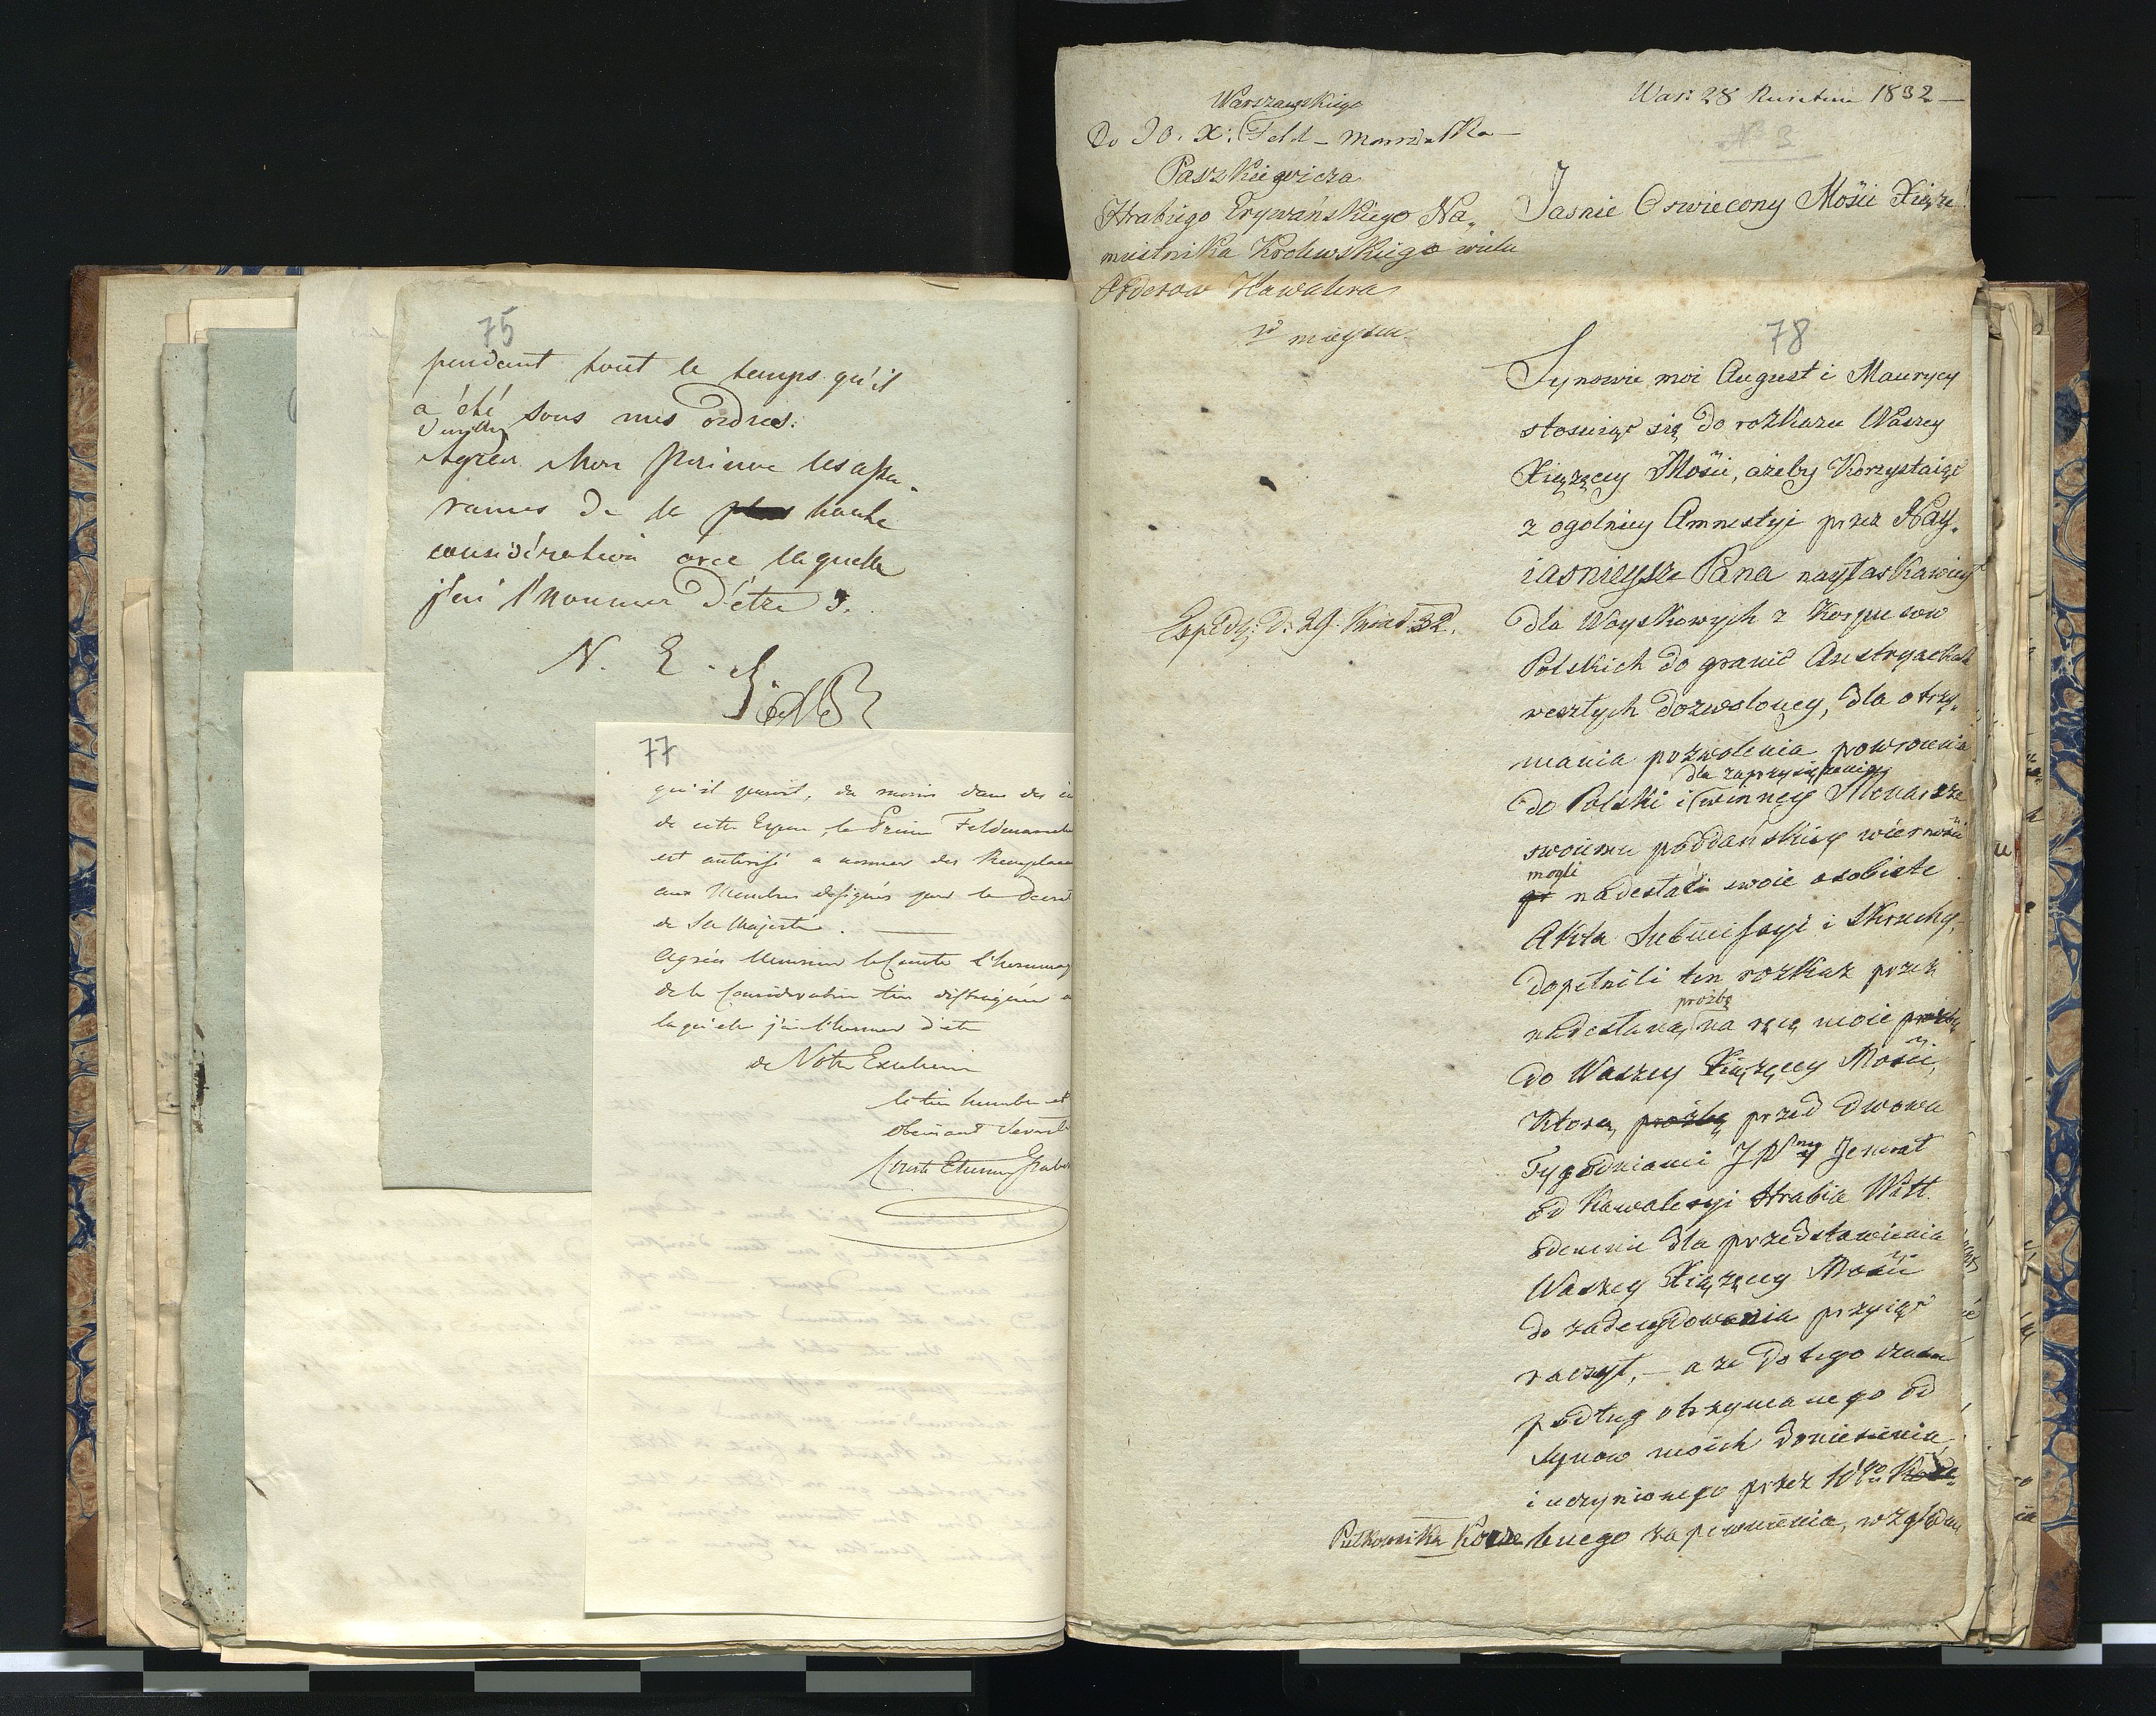 75
pendant tout le temps qu'il
a été sous mes ordres.
Agréer Mon Prince les assu-
rances de la plus haute
considération avec laquelle
j'ai l'honneur d'être
N. E.
77
qu'il paroit, du moins dans des
de cette Epoque, le Prince Feldmarech
est autorisé a nommer des Remplace
aux Membres désignés par le Decret
de Sa Majesté.
Agréez Monsieur le Comte l'hommag
de la Considération très distinguée a
laquelle j'ai l'honneur d'etre
de Votre Excellence
le très humble et
obeissant Servit
Comte Etienne Grabo
Warszawskiego
Do JO. X: Feld-Marszałka
Paszkiewicza
Hrabiego Erywańskiego Na-
miestnika Krolewskiego wielu
Orderow Kawalera
w mieyscu.
Wars 28 Kwietnia 1832 —
N 3
Jasnie Oswiecony Mości Xiąże!
78
Synowie moi August i Maurycy
stosuiąc się do rozkazu Waszey
Xiążęcey Mości, ażeby Korzystaiąc
z ogolney Amnestyi przez Nay-
iasnieysze Pana nayłaskawiey
dla Woyskowych z Korpusow
Polskich do granic Austryackich
weszłych dozwoloney, dla otrzy-
mania pozwolenia powrocenia
dla zaprzysiężenia
do Polski i winney Monarsze
swoiemu poddańskiey wierności
mogli
nadesłać swoie osobiste
Akta Submissyi i Skruchy,
dopełnili ten rozkaz przez
prożbę
nadesłaną na ręcę moie prożbę
do Waszey Xiążęcey Mości,
Ktorą prożbę przed dwoma
Tygodniami JPny Jenerał
od Kawaleryi Hrabia Witt
odemnie dla przedstawienia
Waszey Xiążęcey Mości
do zadecydowania przyiąć
raczył, — a że do tego czasu
podług otrzymanego od
Synow moich doniesienia
i uczynionego przez Wgo
Pułkownika Korze bnego zapewnienia, względem
Expedy: d. 29. Kwiet 32.